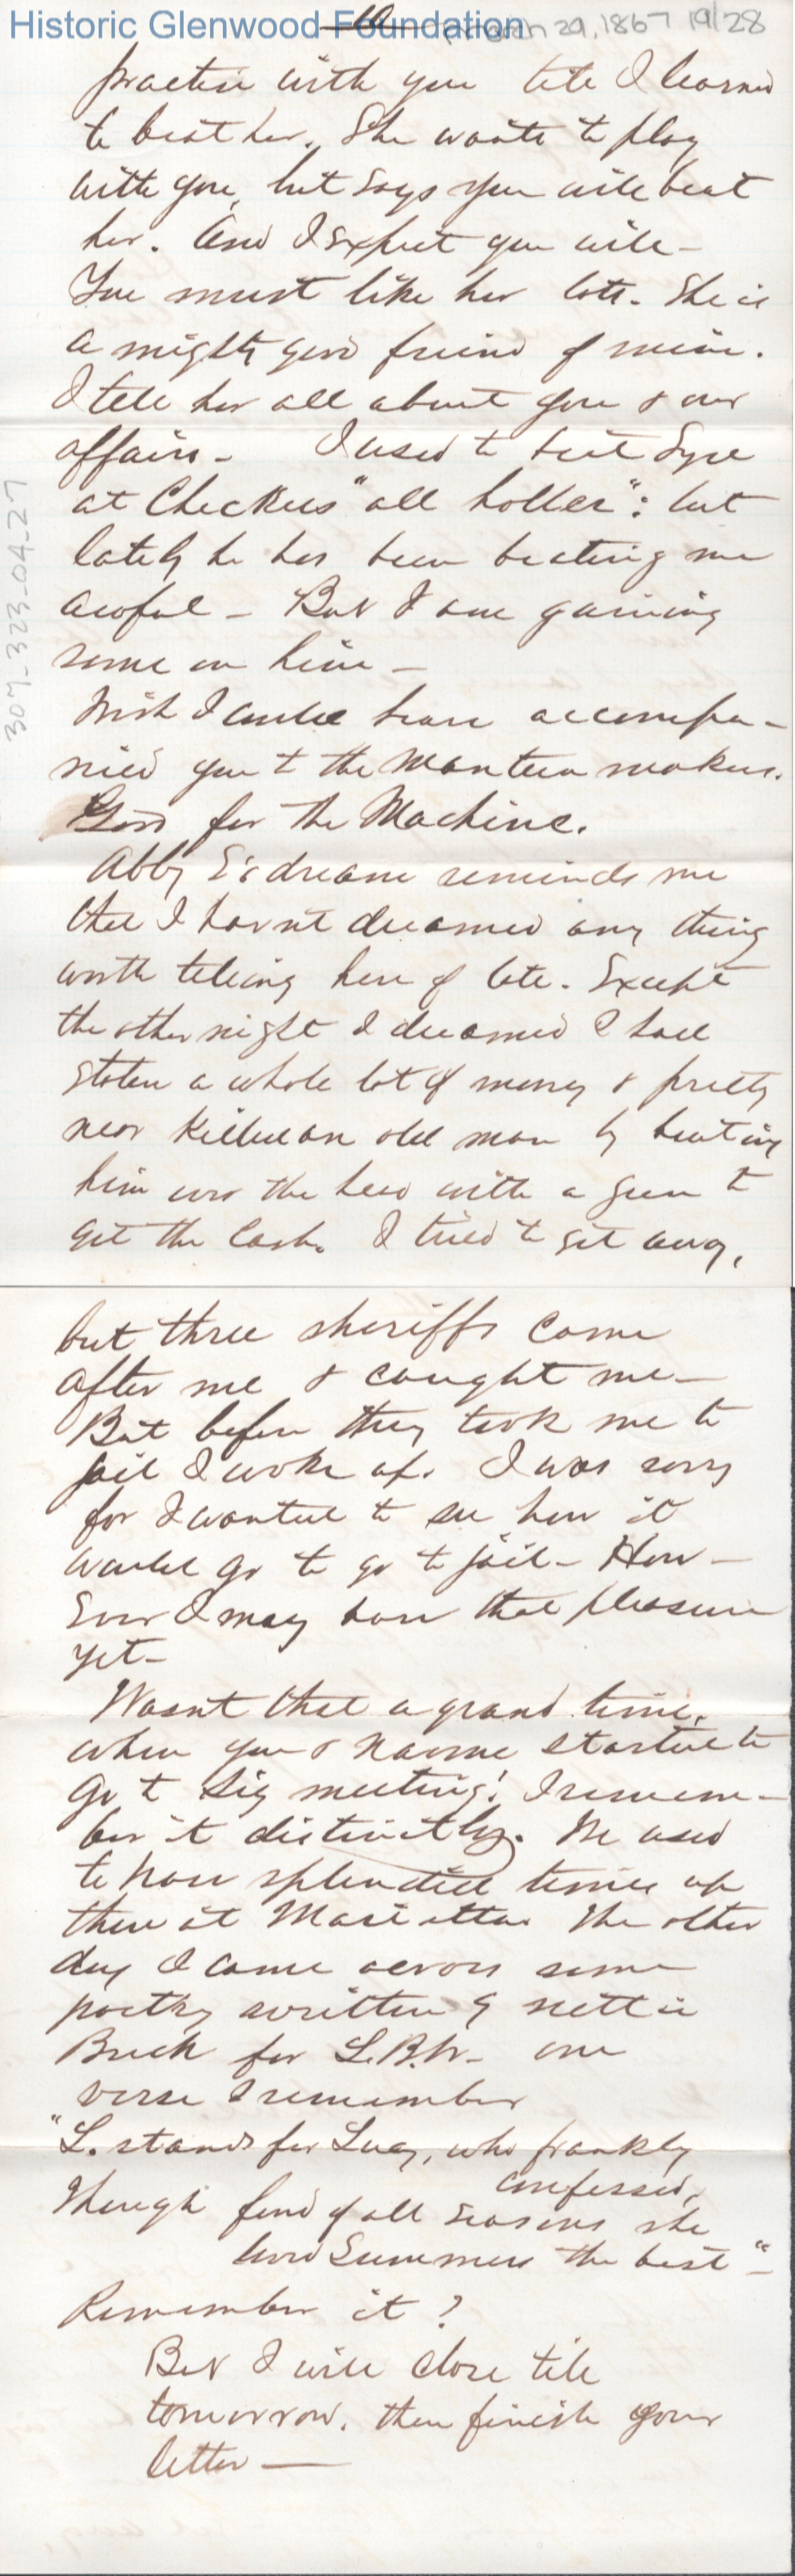 Historic Glenwood Foundation
10
March 29, 1867 19/28
307-323-04-27
practice with you till I learned
to beat her. She wants to play
with you, but says you will beat
her. And I expect you will -
You must like her lots. She is
a mighty good friend of mine.
I tell her all about you & our
affairs - I used to beat Syl
at Checkers "all holler": but
lately he has been beating me
awful - But I am gaining
some on him -
Wish I could have accompa-
nied you to the Mantua makers.
Good for the Machine.
Abby E's dream reminds me
that I havnt dreamed any thing
worth telling here of late. Except
the other night I dreamed I had
stolen a whole lot of money & pretty
near killed an old man by beating
him over the head with a gun to
get the Cash. I tried to get away,
but three sheriffs come
after me & caught me -
But before they took me to
jail I woke up. I was sorry
for I wanted to see how it
would go to go to jail - How-
Ever I may have that pleasure
yet -
Wasnt that a grand time,
when you & Nannie started to
go to Sing meeting! I remem-
ber it distinctly. We used
to have splendid times up
there at Marietta. The other
day I came across some
poetry written by Nettie
Buck for L.B.W. - one
verse I remember
"L. stands for Lucy, who frankly
confessed,
Though fond of all seasons she
loved Summers the best" -
Remember it?
But I will close till
tomorrow, then finish your
letter -